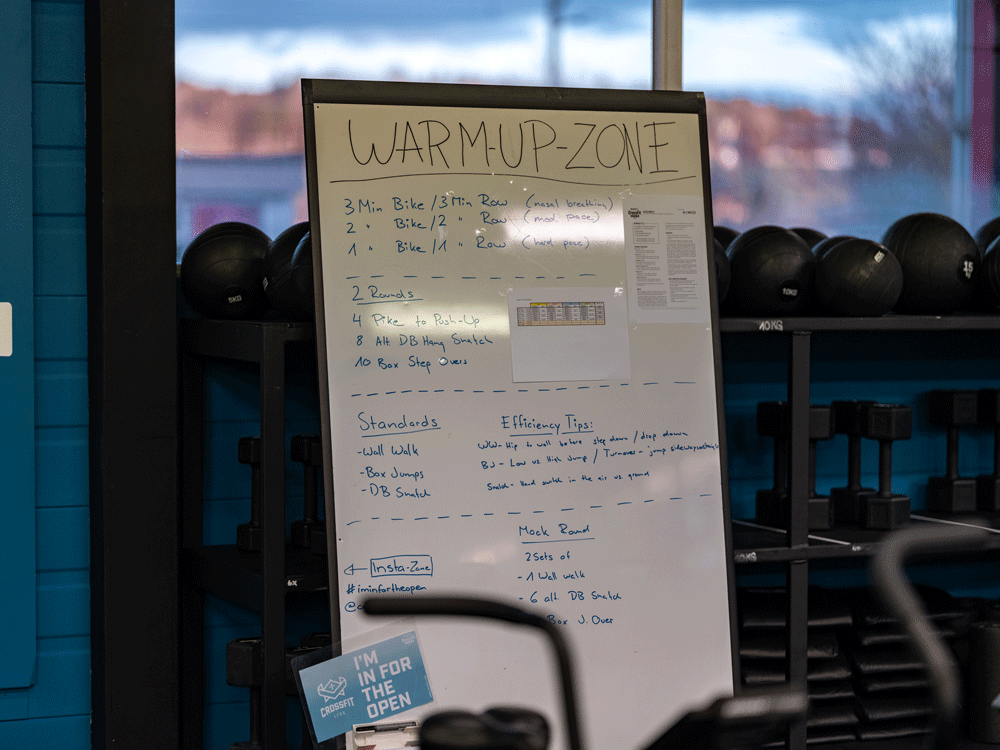 WARM-UP-ZONE
3 Min Bike / 3 Min Row (nasal breathing)
2 " Bike / 2 " Row (mod. pace)
1 " Bike / 1 " Row (hard pace)
2 Rounds
4 Pike to Push-Up
8 Alt. DB Hang Snatch
10 Box Step Overs
Standards
-Wall Walk
-Box Jumps
-DB Snatch
Efficiency Tips:
WW- Hip to wall before step down / drop down
BJ - Low vs High Jump / Turnover - jump sideways
Snatch- Hand switch in the air vs. ground
Mock Round
2 Sets of
- 1 Wall walk
- 6 alt. DB Snatch
Box J. Over
Insta-Zone
#iminfortheopen
I'M
IN FOR
THE
OPEN
CROSSFIT
5KG
10KG
15
10KG